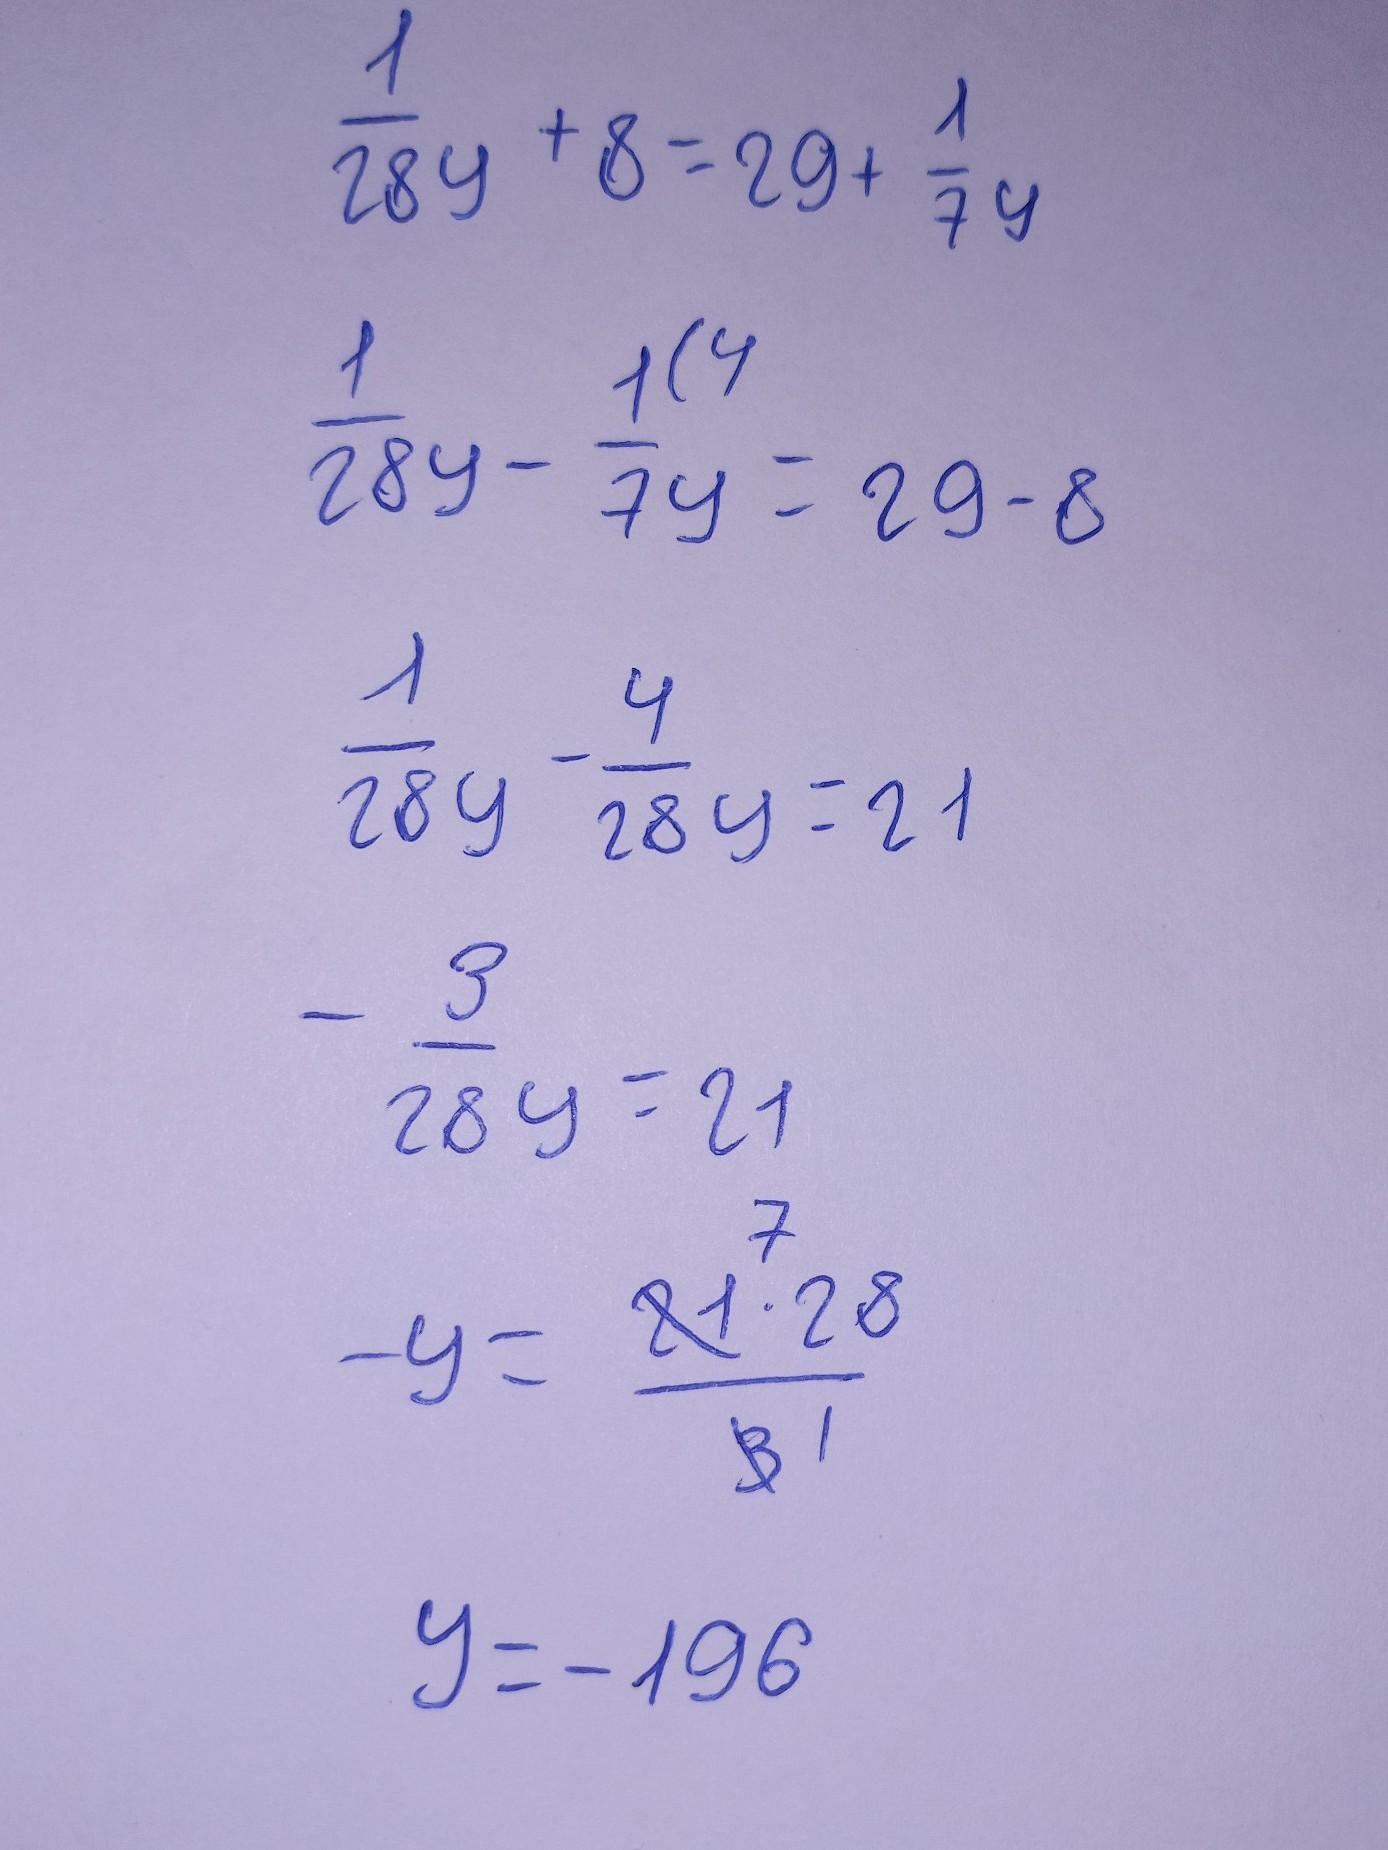 1/28 y + 8 = 29 + 1/7 y
1/28 y - 1(4/7 y = 29 - 8
1/28 y - 4/28 y = 21
- 3/28 y = 21
7
-y = 21 · 28 / 3 1
y = -196